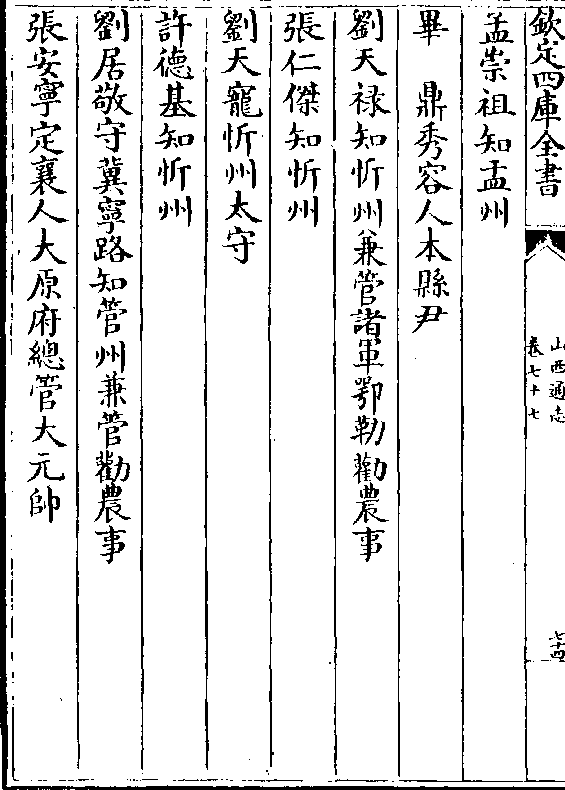 欽定四庫全書
山西通志
卷七十七
七十四
孟崇祖知盂州
畢　鼎秀容人本縣尹
劉天禄知忻州兼管諸軍鄂勒勸農事
張仁傑知忻州
劉天寵忻州太守
許德基知忻州
劉居敬守冀寧路知管州兼管勸農事
張安寧定襄人大原府總管大元帥